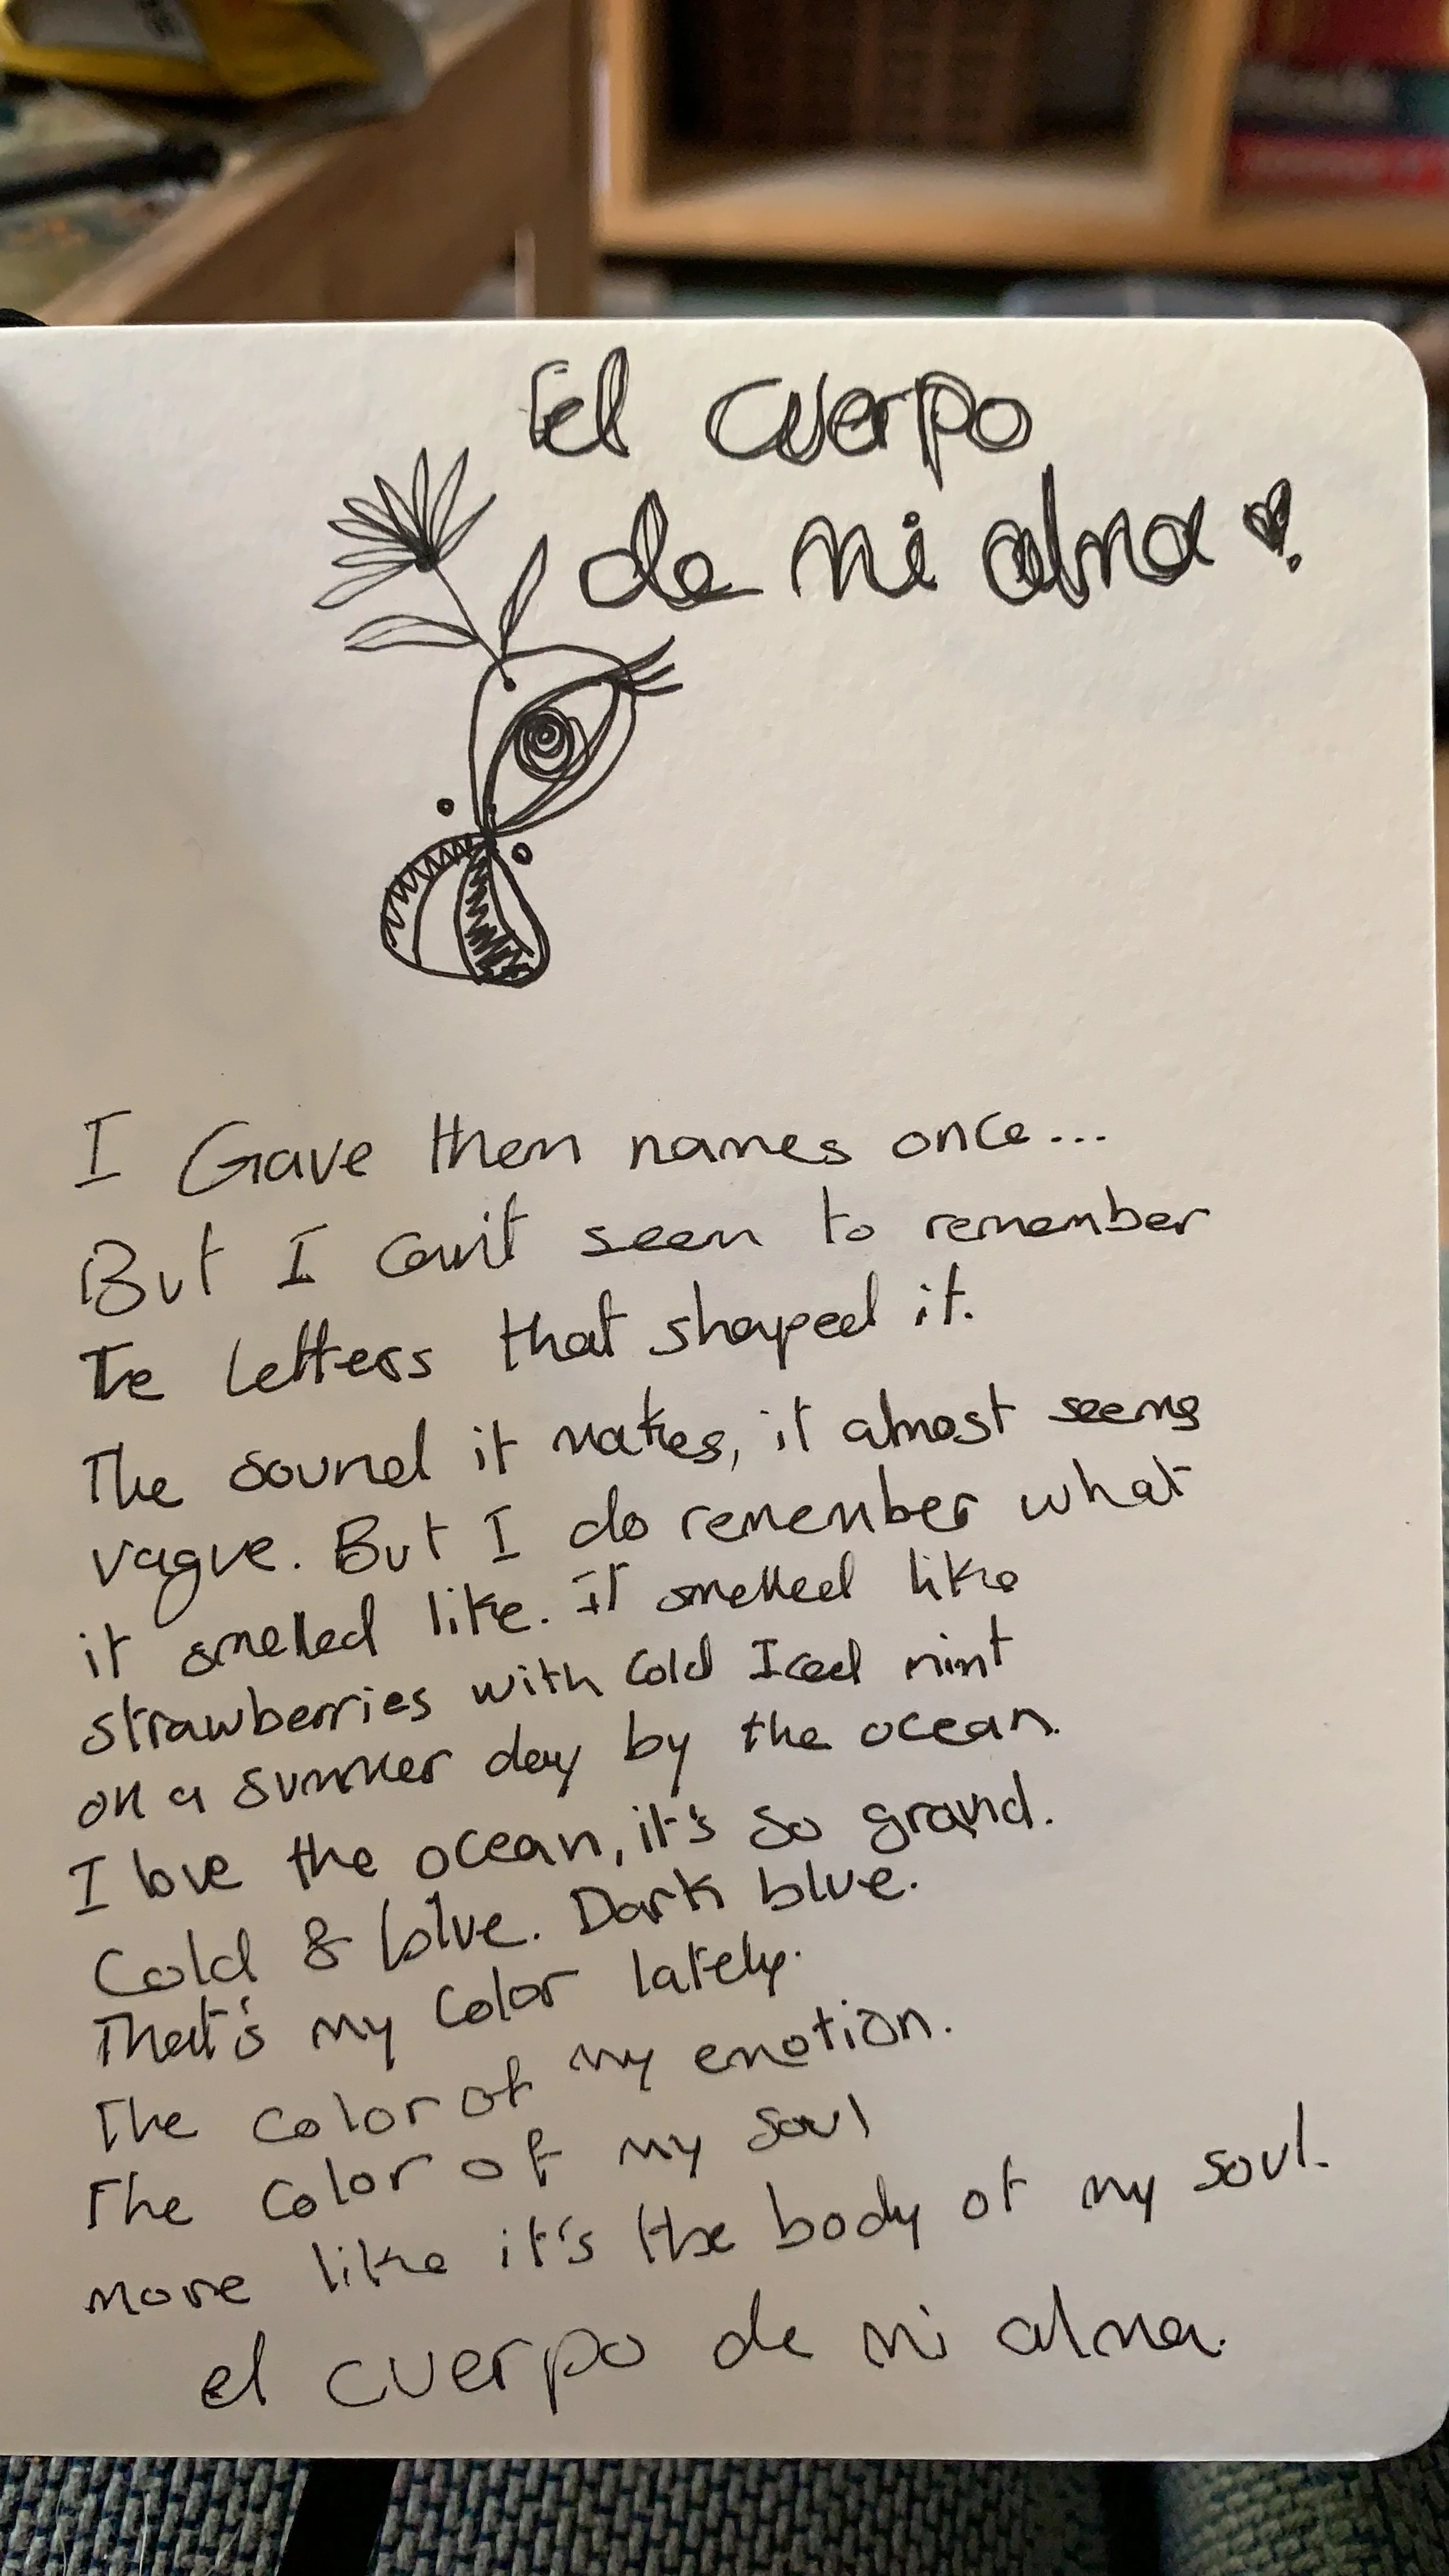 El cuerpo
de mi alma
I Gave them names once...
But I can't seem to remember
Te letters that shaped it.
The sound it makes, it almost seems
vague. But I do remember what
it smelled like. It smelled like
strawberries with Cold Iced mint
on a summer day by the ocean.
I love the ocean, it's so grand.
Cold & blue. Dark blue.
That's my color lately.
The color of my emotion.
The color of my soul
more like it's the body of my soul.
el cuerpo de mi alma.